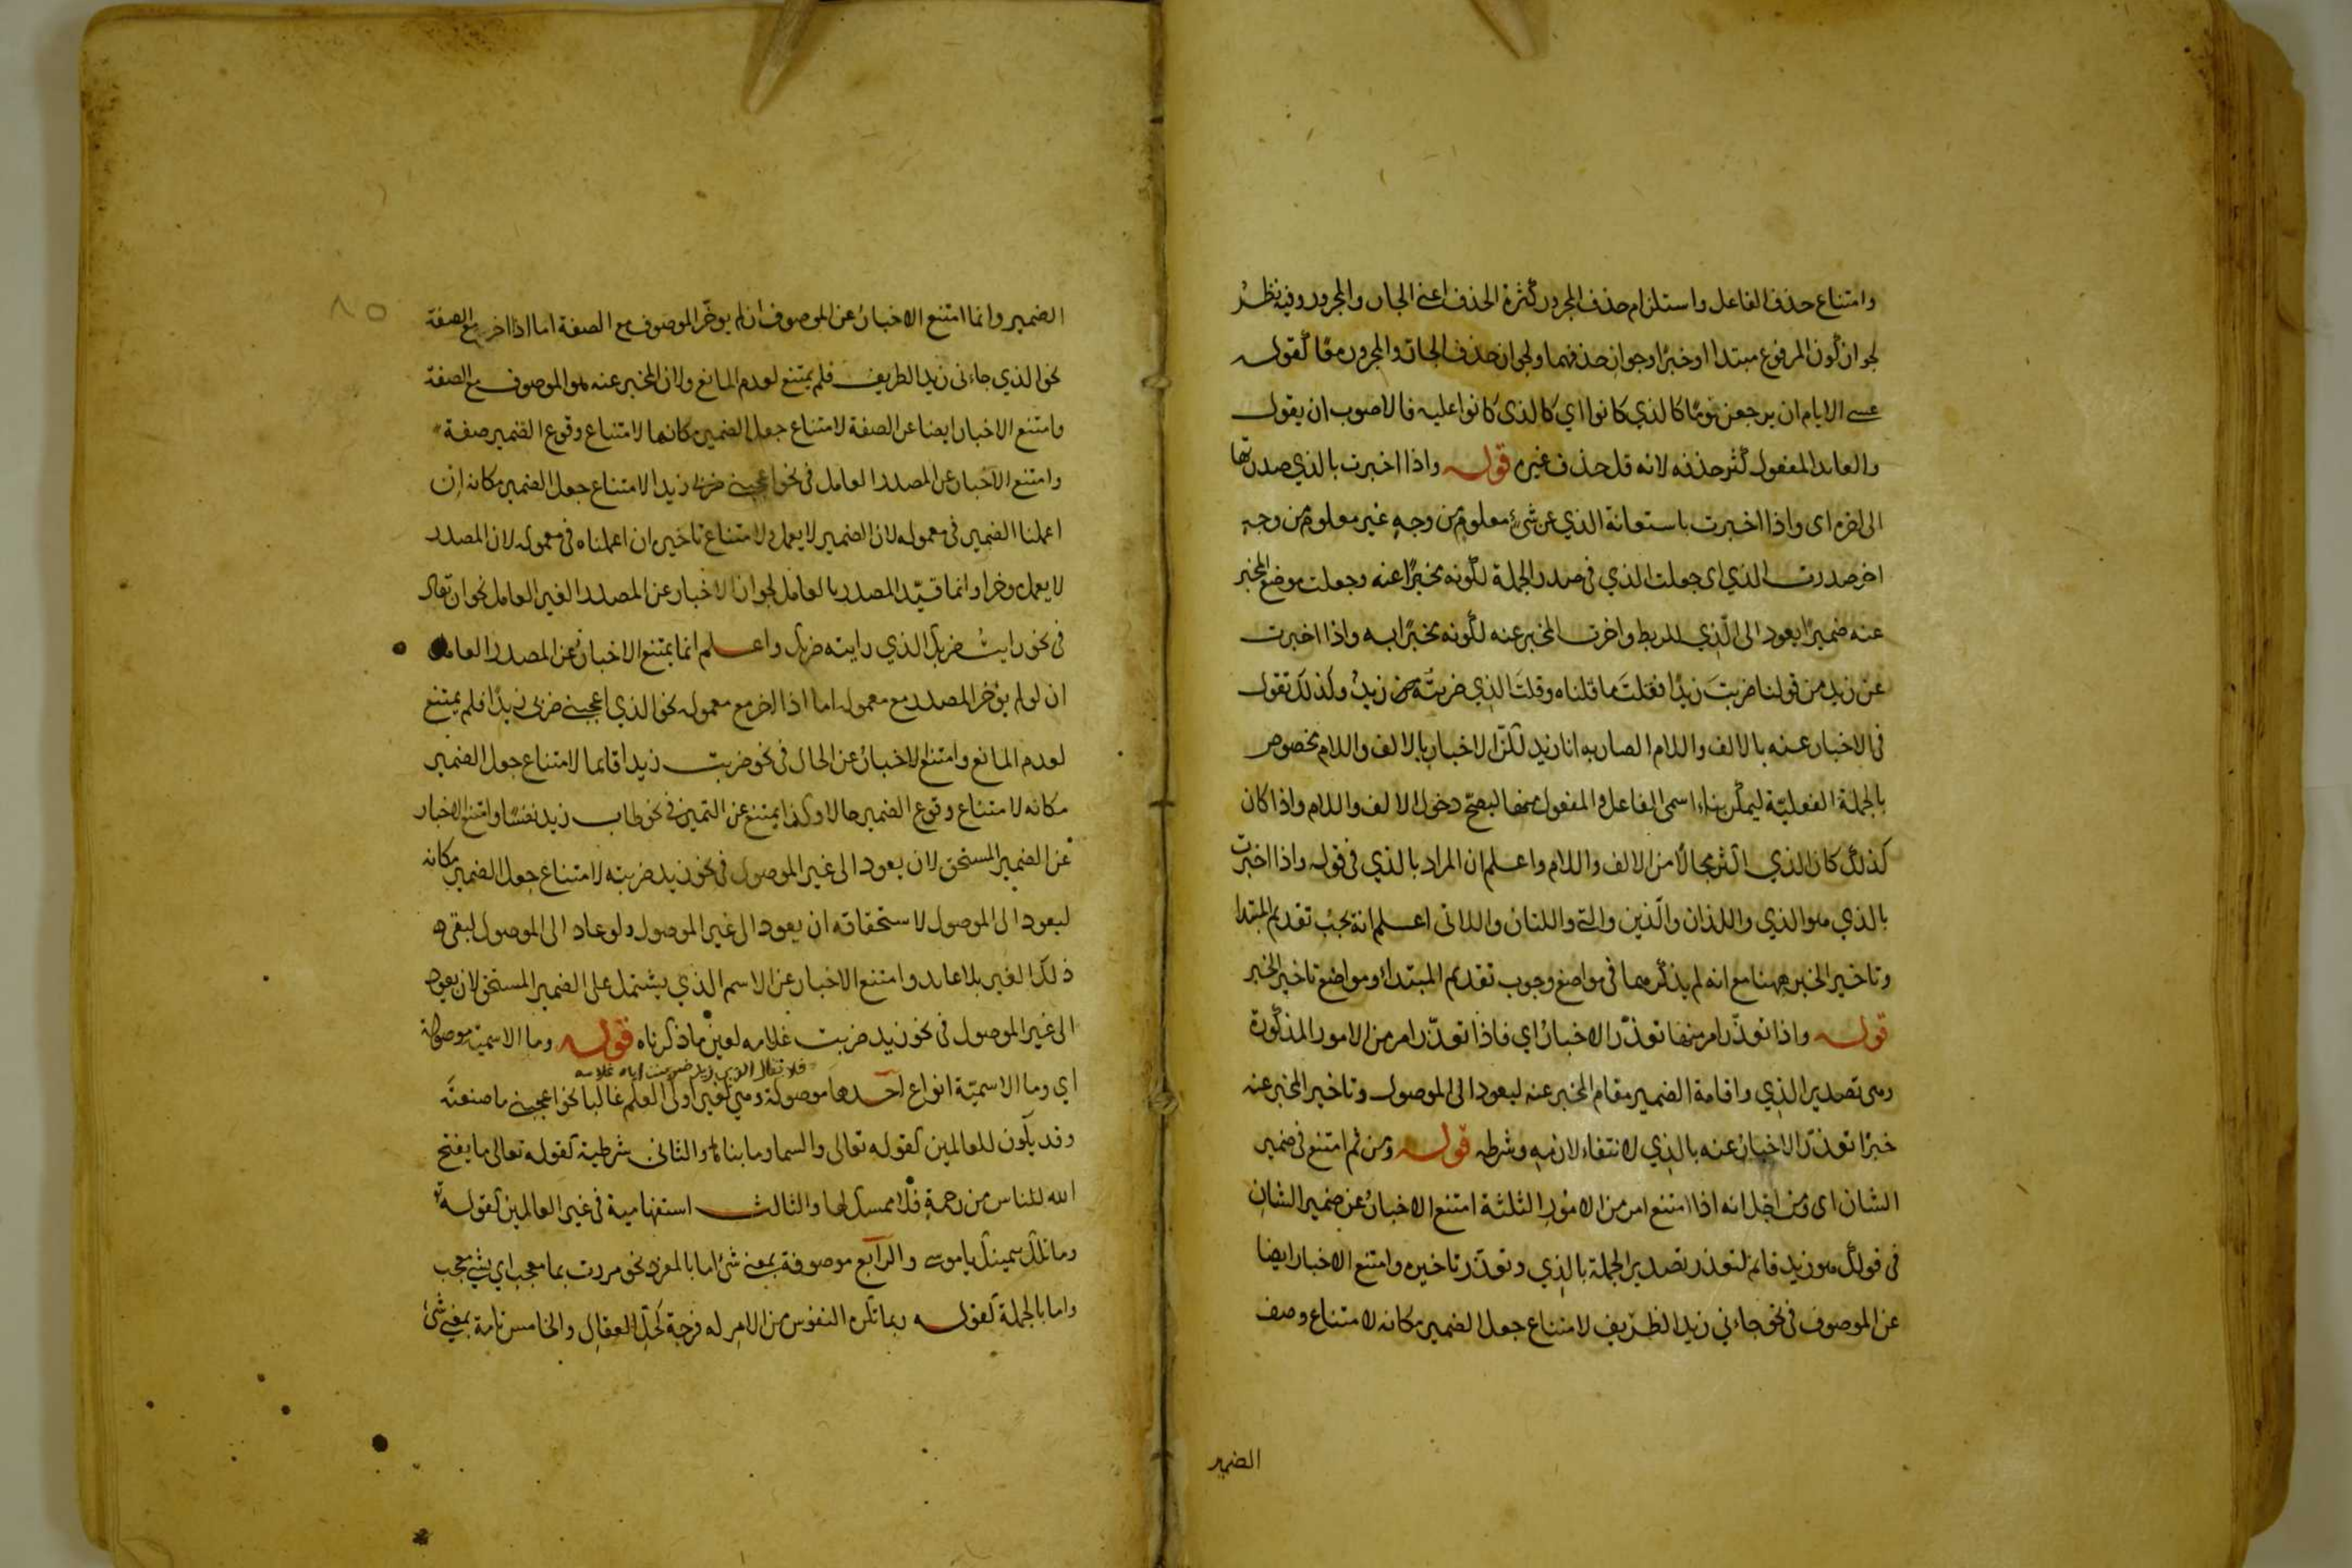 وامتناع حذف الفاعل واستلزام حذف المجرور كثرة الحذف اعني الجار والمجرور وفيه نظر
لجواز كون المرفوع مبتدا او خبرا وجواز حذفهما ولجواز حذف الجار والمجرور معًا كقوله
عسى الايام ان يرجعن قومًا كالذي كانوا اي كالذي كانوا عليه فالاصوب ان يقول
والعايد المفعول كثر حذفه لانه قل حذف غيره قوله واذا اخبرت بالذي صدرتها
الى اخره اى واذا اخبرت باستعانة الذي عن شئ معلوم من وجه غير معلوم من وجه
اخر صدرت الذي اى جعلت الذي في صدر الجملة لكونه مخبرًا عنه وجعلت موضع المخبر
عنه ضميرًا يعود الى الّذي للربط واخرت المخبر عنه لكونه مخبرًا به واذا اخبرت
عن زيد من قولنا ضربتَ زيدًا فعلتَ ما قلناه وقلتَ الذي ضربتُه زيدٌ وكذلك تقول
في الاخبار عنه بالالف واللام الضاربه انا زيد لكنّ الاخبار بالالف واللام مخصوص
بالجملة الفعليّة ليمكن بناء اسمى الفاعل والمفعول منها ليصحّ دخول الالف واللام واذا كان
كذلك كان الذي اكثر مجالًا من الالف واللام واعلم ان المراد بالذي في قوله واذا اخبرت
بالذي هو الذي واللذان والّذين والتي واللتان واللاتى اعلم انه يجب تقديم المبتدا
وتاخير الخبر ههنا مع انه لم يذكرهما في مواضع وجوب تقديم المبتدا ومواضع تاخير الخبر
قوله واذا تعذّر امر منها تعذّر الاخبار اي فاذا تعذّر امر من الامور المذكورة
وهى تصدير الذي واقامة الضمير مقام المخبر عنه ليعود الى الموصول وتاخير المخبر عنه
خبرًا تعذّر الاخبار عنه بالذي لانتفاء لازمه وشرطه قوله ومن ثم امتنع في ضمير
الشان اى ومن اجل انه اذا امتنع امر من الامور الثلثة امتنع الاخبار عن ضمير الشان
في قولك هو زيد قايم لتعذر تصدير الجملة بالذي وتعذّر تاخيره وامتنع الاخبار ايضا
عن الموصوف في نحو جاءني زيد الظريف لامتناع جعل الضمير مكانه لامتناع وصف
الضمير
الضمير وانما امتنع الاخبار عن الموصوف ان لم يوخّر الموصوف مع الصفة اما اذا اخر مع الصفة
نحو الذي جاءنى زيد الظريف فلم يمتنع لعدم المانع ولان المخبر عنه هو الموصوف مع الصفة
وامتنع الاخبار ايضا عن الصفة لامتناع جعل الضمير مكانها لامتناع وقوع الضمير صفة
وامتنع الاخبار عن المصدر العامل في نحو اعجبني ضربى زيدا لامتناع جعل الضمير مكانه ان
اعملنا الضمير في معموله لان الضمير لا يعمل ولامتناع تاخيره ان اعملناه في معموله لان المصدر
لا يعمل موخرا وانما قيّد المصدر بالعامل لجواز الاخبار عن المصدر الغير العامل نحو ان تقال
في نحو رايت ضربك الذي رايته ضربك واعلم انما يمتنع الاخبار عن المصدر العامل
ان لو لم يؤخر المصدر مع معموله اما اذا اخر مع معموله نحو الذي اعجبني ضربى زيدًا فلم يمتنع
لعدم المانع وامتنع الاخبار عن الحال في نحو ضربت زيدا قايما لامتناع جعل الضمير
مكانه لامتناع وقوع الضمير حالا وكذا يمتنع عن التميز في نحو طاب زيد نفسًا وامتنع الاخبار
عن الضمير المستحق لان يعود الى غير الموصول في نحو زيد ضربته لامتناع جعل الضمير مكانه
ليعود الى الموصول لاستحقاقه ان يعود الى غير الموصول ولو عاد الى الموصول لبقى
ذلك الغير بلا عايد وامتنع الاخبار عن الاسم الذي يشتمل على الضمير المستحق لان يعود
الى غير الموصول في نحو زيد ضربت غلامه لعين ما ذكرناه قوله وما الاسمية موصولة
فلا تقال الذي زيد ضربت اياه غلامه
اي وما الاسميّة انواع احدها موصولة وهي لغير اولى العلم غالبا نحو اعجبني ما صنعتَه
وقد يكون للعالمين كقوله تعالى والسما وما بناها والثانى شرطية كقوله تعالى ما يفتح
الله للناس من رحمة فلا ممسك لها والثالث استفهامية في غير العالمين كقوله تع
وما تلك بيمينك يا موسى والرابع موصوفة بمعنى شئ اما بالمفرد نحو مررت بما معجب اي بشئ معجب
واما بالجملة كقوله ربما تكره النفوس من الامر له فرجة كحل العقال والخامس تامة بمعنى شئ